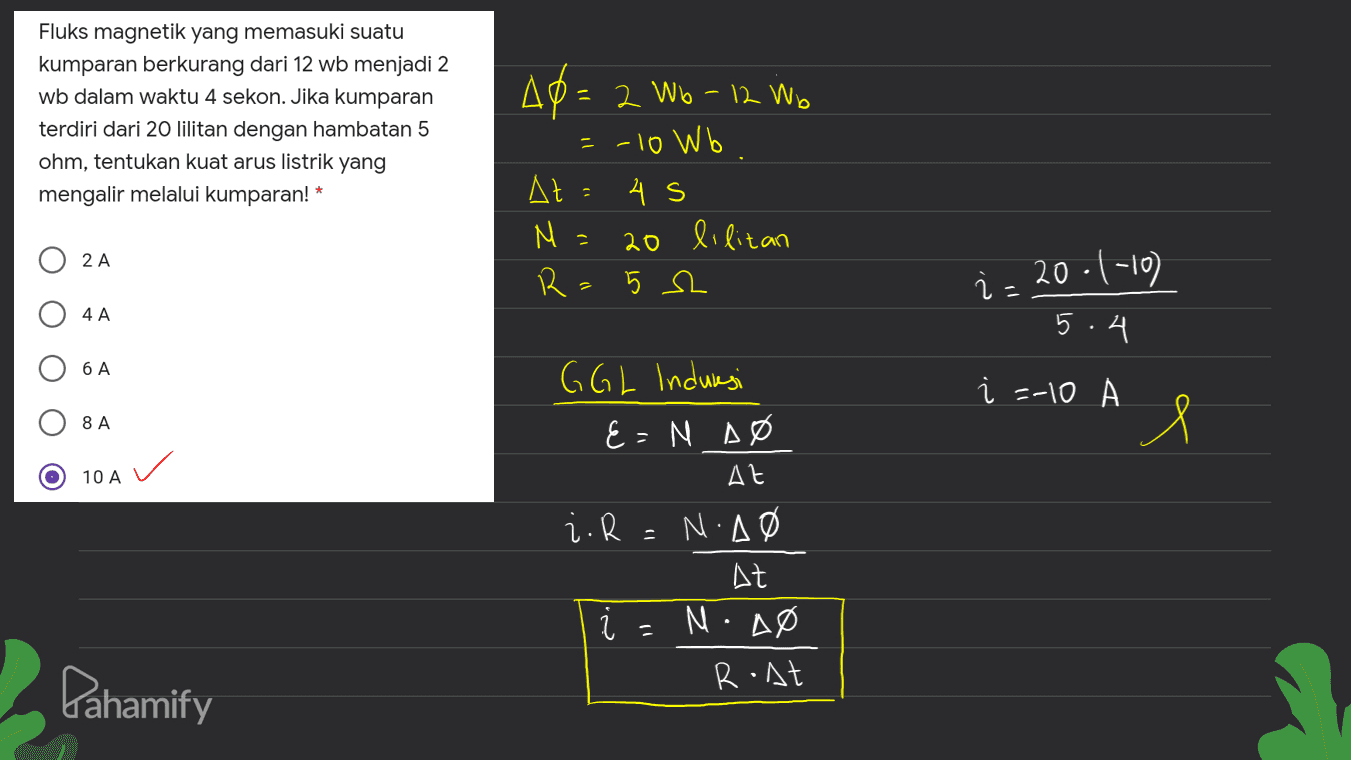 Fluks magnetik yang memasuki suatu
kumparan berkurang dari 12 wb menjadi 2
wb dalam waktu 4 sekon. Jika kumparan
terdiri dari 20 lilitan dengan hambatan 5
ohm, tentukan kuat arus listrik yang
mengalir melalui kumparan! *
2 A
4 A
6 A
8 A
10 A
ΔØ = 2 Wb - 12 Wb
= -10 Wb.
Δt = 4 s
N = 20 lilitan
R = 5 Ω
GGL Induksi
ε = N ΔØ
Δt
i.R = N·ΔØ
Δt
i = N·ΔØ
R·Δt
i = 20·(-10)
5.4
i = -10 A
Pahamify